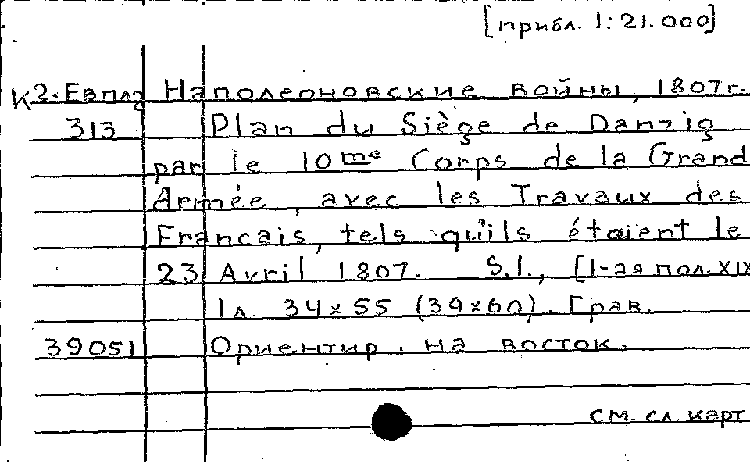 [прибл. 1:21.000]
К2-Евпл2 Наполеоновские войны, 1807г.
313 Plan du Siège de Danzig
par le 10me Corps de la Grand
Armée, avec les Travaux des
Francais, tels qu'ils étaient le
23 Avril 1807. S.l., [1-ая пол. XIX
1л. 34×55 (39×60). Грав.
39051 Ориентир. на восток.
см. сл. карт